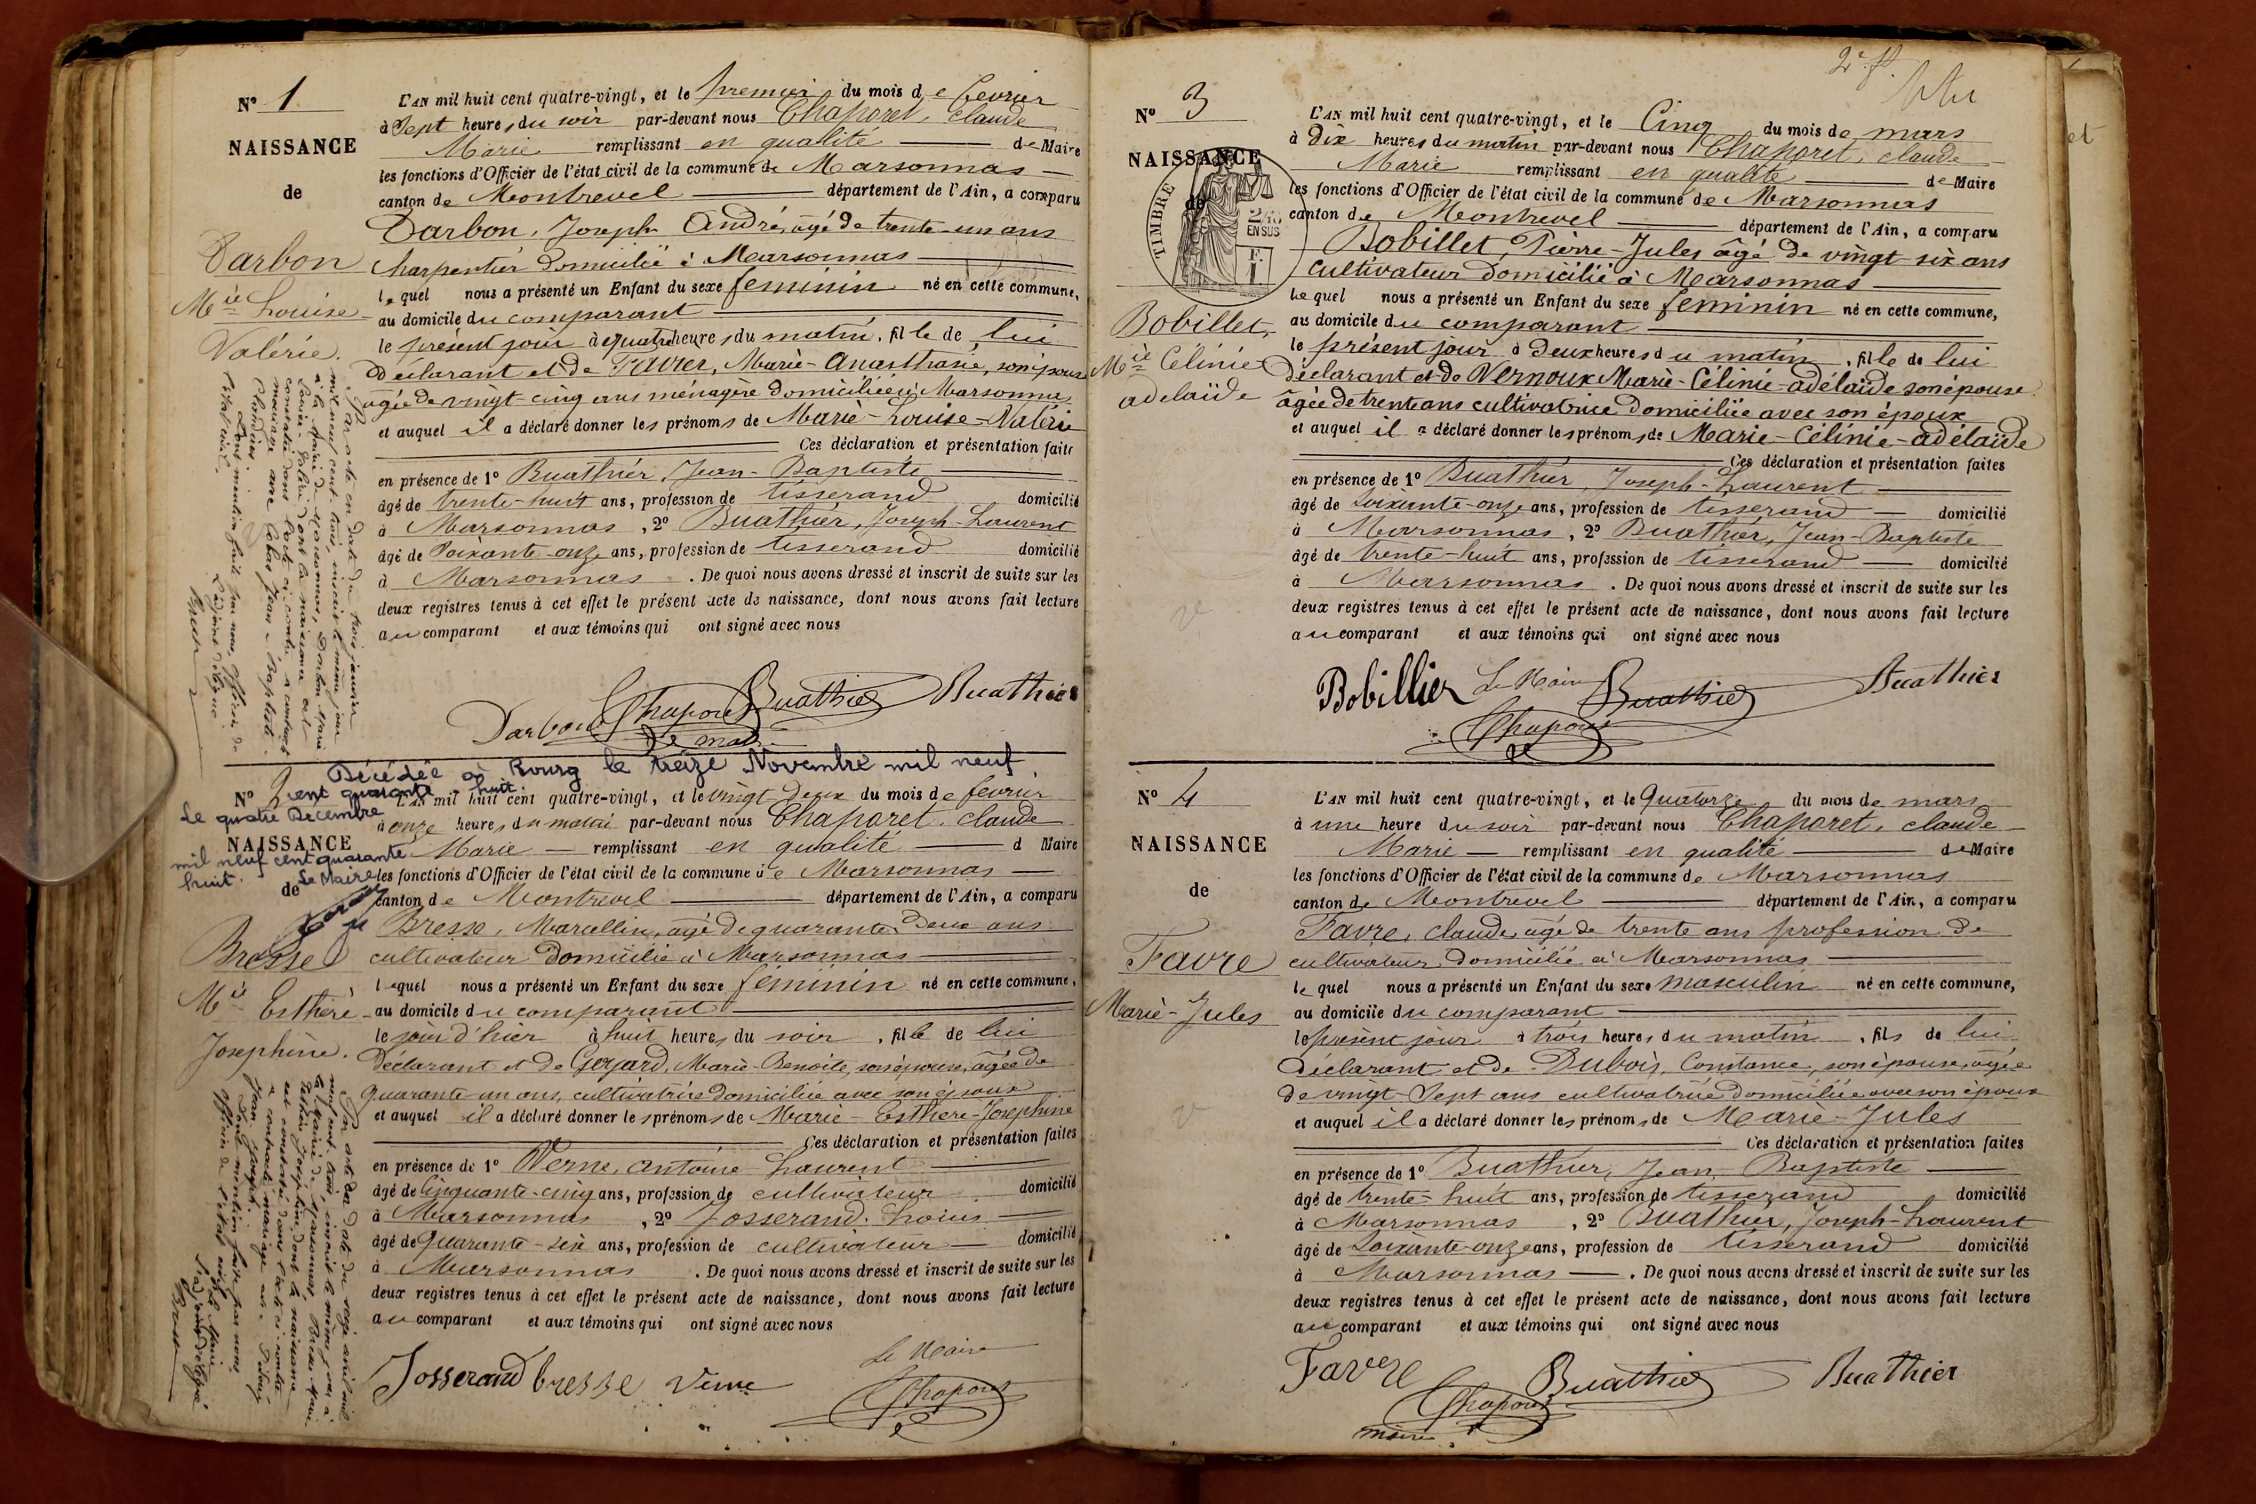 N° 1
NAISSANCE
de
Darbon
Mie Louise
Valérie.
L'AN mil huit cent quatre-vingt, et le premier du mois de fevrier
à Sept heures du soir par-devant nous Chaparel, claude
Marie remplissant en qualité de Maire
les fonctions d'Officier de l'état civil de la commune de Marsonnas
canton de Montrevel département de l'Ain, a comparu
Darbon, Joseph André, agé de trente-un ans
charpentier domicilié à Marsonnas
lequel nous a présenté un Enfant du sexe feminin né en cette commune,
au domicile du comparant
le présent jour à quatre heures du matin, fille de lui
déclarant et de Favier, Marie-Anasthasie, son épouse
agée de vingt-cinq ans ménagère domiciliée à Marsonnas
et auquel il a déclaré donner les prénoms de Marie-Louise-Valérie
Ces déclaration et présentation faites
en présence de 1° Buathier, Jean-Baptiste
âgé de trente-huit ans, profession de tisserand domicilié
à Marsonnas, 2° Buathier, Joseph-Laurent
âgé de Soixante-onze ans, profession de tisserand domicilié
à Marsonnas. De quoi nous avons dressé et inscrit de suite sur les
deux registres tenus à cet effet le présent acte de naissance, dont nous avons fait lecture
au comparant et aux témoins qui ont signé avec nous
Darbon Chaparel Buathier Buathier
Par acte en date du trois janvier
mil neuf cent trois, inscrit le même jour
à la Mairie de Marsonnas, Darbon Marie
Louise Valérie dont la naissance est
constatée dans l'acte ci-contre, a contracté
mariage avec Jean-Baptiste
Décédée à Bourg le treize Novembre mil neuf
cent quarante huit.
Le quatre Décembre
mil neuf cent quarante
huit. Le Maire
N° 2
NAISSANCE
de
Bresse
Mie Esthère
Josephine.
L'AN mil huit cent quatre-vingt, et le vingt deux du mois de fevrier
à onze heures du matin par-devant nous Chaparel, claude
Marie remplissant en qualité d Maire
les fonctions d'Officier de l'état civil de la commune de Marsonnas
canton de Montrevel département de l'Ain, a comparu
Bresse, Marcellin, agé de quarante-deux ans
cultivateur domicilié à Marsonnas
lequel nous a présenté un Enfant du sexe féminin né en cette commune,
au domicile du comparant
le jour d'hier à huit heures du soir, fille de lui
déclarant et de Goyard, Marie-Benoite, son épouse, âgée de
quarante un ans, cultivatrice domiciliée avec son époux
et auquel il a déclaré donner les prénoms de Marie-Esthère-Josephine
Ces déclaration et présentation faites
en présence de 1° Verne, antoine Laurent
âgé de Cinquante-cinq ans, profession de cultivateur domicilié
à Marsonnas, 2° Josserand, Louis
âgé de quarante-six ans, profession de cultivateur domicilié
à Marsonnas. De quoi nous avons dressé et inscrit de suite sur les
deux registres tenus à cet effet le présent acte de naissance, dont nous avons fait lecture
au comparant et aux témoins qui ont signé avec nous
Le Maire
Josserand bresse Verne Chaparel
N° 3
NAISSANCE
de
TIMBRE
2/10
EN SUS
Bobillet,
Mie Célinie
adelaïde
L'AN mil huit cent quatre-vingt, et le Cinq du mois de mars
à dix heures du matin par-devant nous Chaparel, claude
Marie remplissant en qualité de Maire
les fonctions d'Officier de l'état civil de la commune de Marsonnas
canton de Montrevel département de l'Ain, a comparu
Bobillet, Pierre-Jules âgé de vingt six ans
cultivateur domicilié à Marsonnas
lequel nous a présenté un Enfant du sexe feminin né en cette commune,
au domicile du comparant
le présent jour à deux heures du matin, fille de lui
déclarant et de Vernoux Marie-Célinie-adélaïde son épouse
âgée de trente ans cultivatrice domiciliée avec son époux
et auquel il a déclaré donner les prénoms de Marie-Célinie-adélaïde
Ces déclaration et présentation faites
en présence de 1° Buathier, Joseph-Laurent
âgé de Soixante-onze ans, profession de tisserand domicilié
à Marsonnas, 2° Buathier, Jean-Baptiste
âgé de trente-huit ans, profession de tisserand domicilié
à Marsonnas. De quoi nous avons dressé et inscrit de suite sur les
deux registres tenus à cet effet le présent acte de naissance, dont nous avons fait lecture
au comparant et aux témoins qui ont signé avec nous
Bobillier Le Maire Buathier Buathier
Chaparel
N° 4
NAISSANCE
de
Favre
Marie-Jules
L'AN mil huit cent quatre-vingt, et le Quatorze du mois de mars
à une heure du soir par-devant nous Chaparel, claude
Marie remplissant en qualité de Maire
les fonctions d'Officier de l'état civil de la commune de Marsonnas
canton de Montrevel département de l'Ain, a comparu
Favre, claude, agé de trente ans profession de
cultivateur domicilié à Marsonnas
lequel nous a présenté un Enfant du sexe masculin né en cette commune,
au domicile du comparant
le présent jour à trois heures du matin, fils de lui
déclarant et de Dubois, Constance, son épouse, agée
de vingt-Sept ans cultivatrice domiciliée avec son époux
et auquel il a déclaré donner les prénoms de Marie-Jules
Ces déclaration et présentation faites
en présence de 1° Buathier, Jean Baptiste
âgé de trente-huit ans, profession de tisserand domicilié
à Marsonnas, 2° Buathier, Joseph-Laurent
âgé de Soixante-onze ans, profession de tisserand domicilié
à Marsonnas. De quoi nous avons dressé et inscrit de suite sur les
deux registres tenus à cet effet le présent acte de naissance, dont nous avons fait lecture
au comparant et aux témoins qui ont signé avec nous
Favre Buathier Buathier
Chaparel
maire